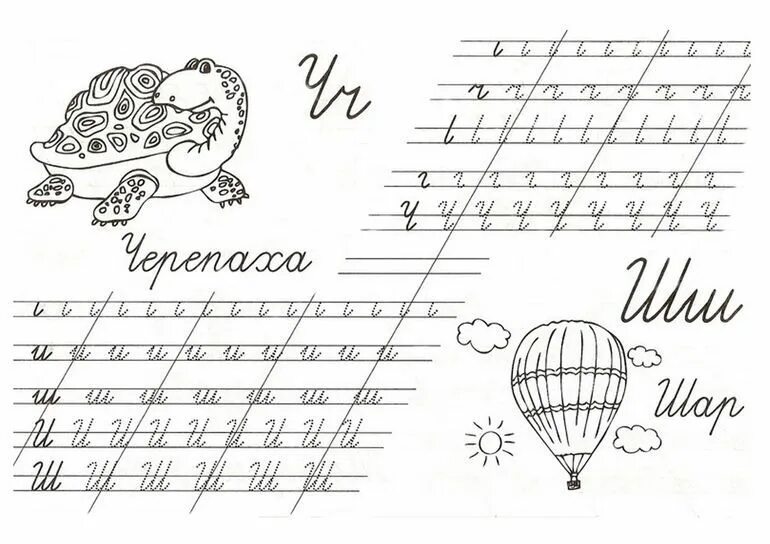 Чч
ч ч ч ч ч ч ч ч
Ч Ч Ч Ч Ч Ч Ч Ч Ч
Черепаха
Шш
и и и и и и и и и и
ш ш ш ш ш ш ш
И И И И И И И И И
Ш Ш Ш Ш Ш Ш
Шар